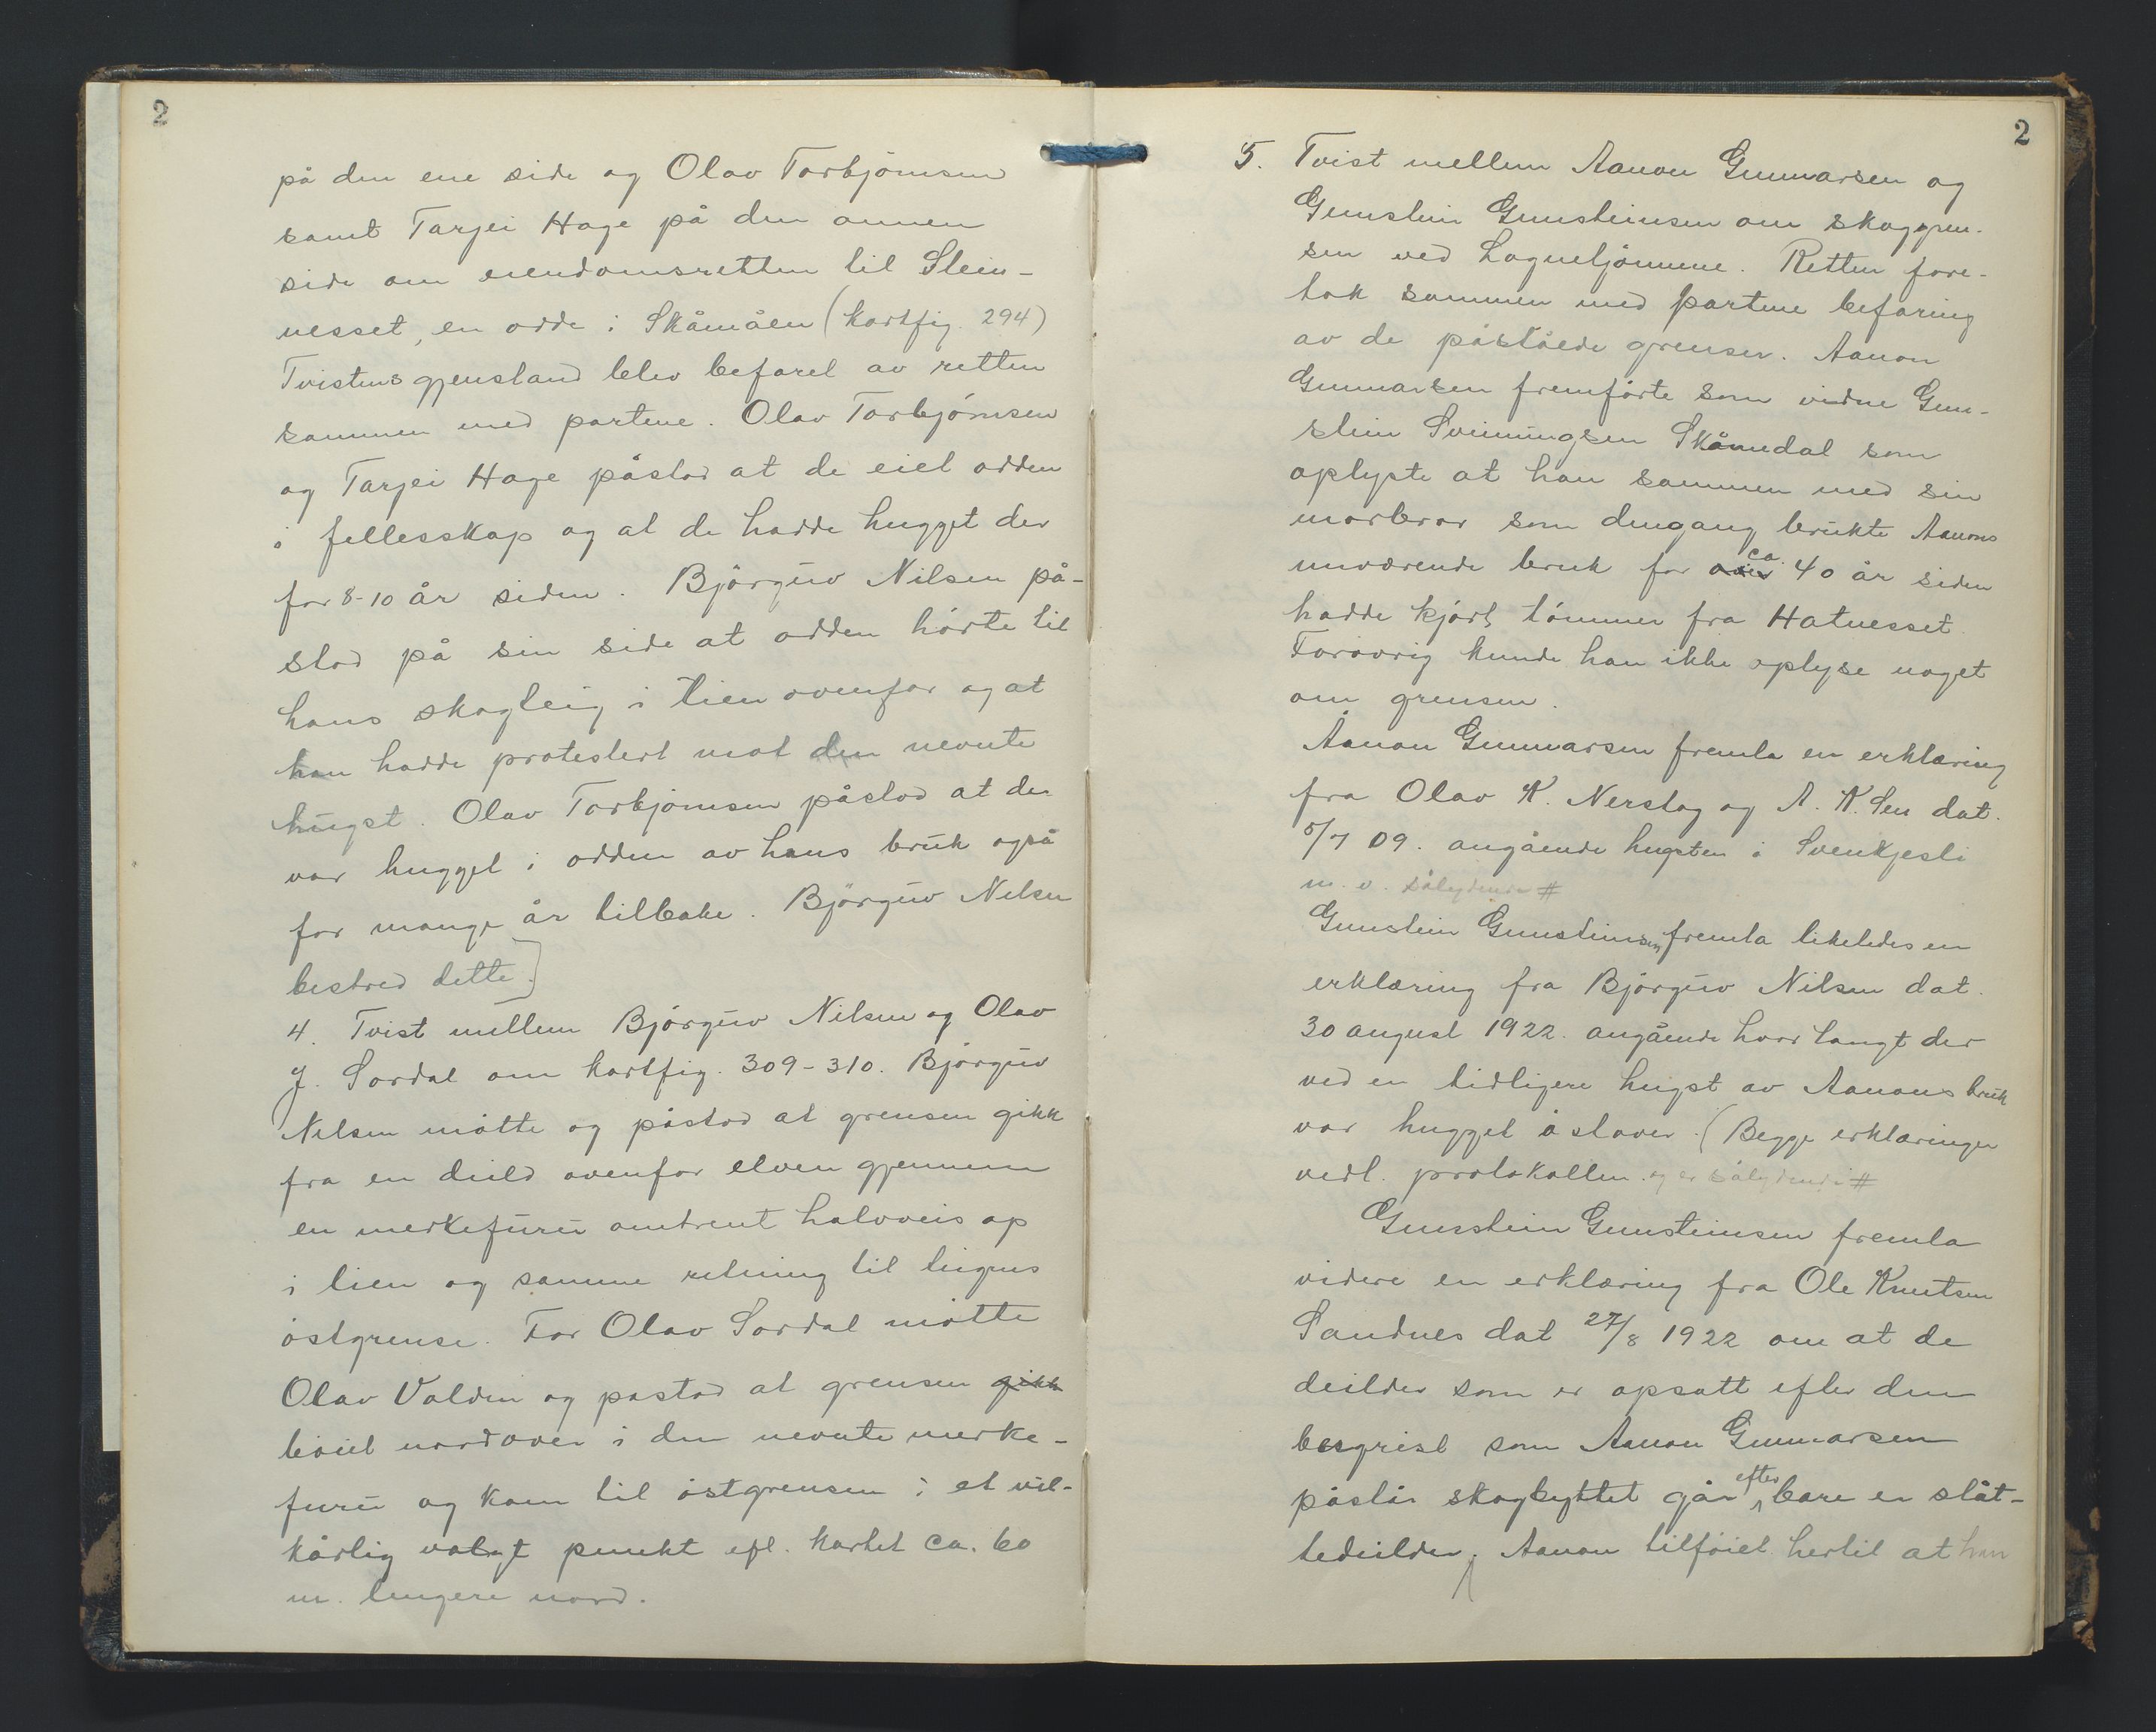 2
på den ene side og Olav Torbjörnsen
samt Tarjei Hage på den annen
side om eiendomsretten til Stein-
nesset, en odde i Skåmåen (kartfig. 294)
Tvistens gjenstand blev befaret av retten
sammen med partene. Olav Torbjörnsen
og Tarjei Hage påstod at de eiet odden
i fellesskap og at de hadde hugget der
for 8-10 år siden. Björgüv Nilsen på-
stod på sin side at odden hörte til
hans skogteig i lien ovenfor og at
han hadde protestert mot den nevnte
hugst. Olav Torbjörnsen påstod at der
var hugget i odden av hans bruk også
for mange år tilbake. Björgüv Nilsen
bestred dette.]
4. Tvist mellem Björgüv Nilsen og Olav
J. Sordal om kartfig. 309-310. Björgüv
Nilsen mötte og påstod at grensen gikk
fra en deild ovenfor elven gjennem
en merkefuru omtrent halvveis op
i lien og samme retning til teigens
östgrense. For Olav Sordal mötte
Olav Valden og påstod at grensen gikk
böiet nordover i den nevnte merke-
furu og kom til östgrensen i et vil-
kårlig valgt punkt efl. kartet ca. 60
m. lengere nord.
2
5. Tvist mellem Aanon Gunnarsen og
Gunstein Gunsteinsen om skoggren-
sen ved Lognetjönnene. Retten fore-
tok sammen med partene befaring
av de påståede grenser. Aanon
Gunnarsen fremförte som vidne Gun-
stein Sveinungsen Skåmedal som
oplyste at han sammen med sin
morbror som dengang brukte Aanons
nuværende bruk for over ca. 40 år siden
hadde kjört tömmer fra Hatnesset.
Forövrig kunde han ikke oplyse noget
om grensen.
Aanon Gunnarsen fremla en erklæring
fra Olav K. Nerstog og A. K. Sen dat.
5/7 09. angående hugsten i Svenkjesli
m. v. sålydende #
Gunstein Gunsteinsen fremla likeledes en
erklæring fra Björgüv Nilsen dat.
30 august 1922. angående hvor langt der
ved en tidligere hugst av Aanons bruk
var hugget östover. (Begge erklæringer
vedl. protokollen. og er sålydende #
Gunstein Gunsteinsen fremla
videre en erklæring fra Ole Knutsen
Sandnes dat 27/8 1922 om at de
deilder som er opsatt efter den
besgrist som Aanon Gunnarsen
påstår skogbyttet går efter bare er slåt-
tedeilder. Aanon tilföiet hertil at han